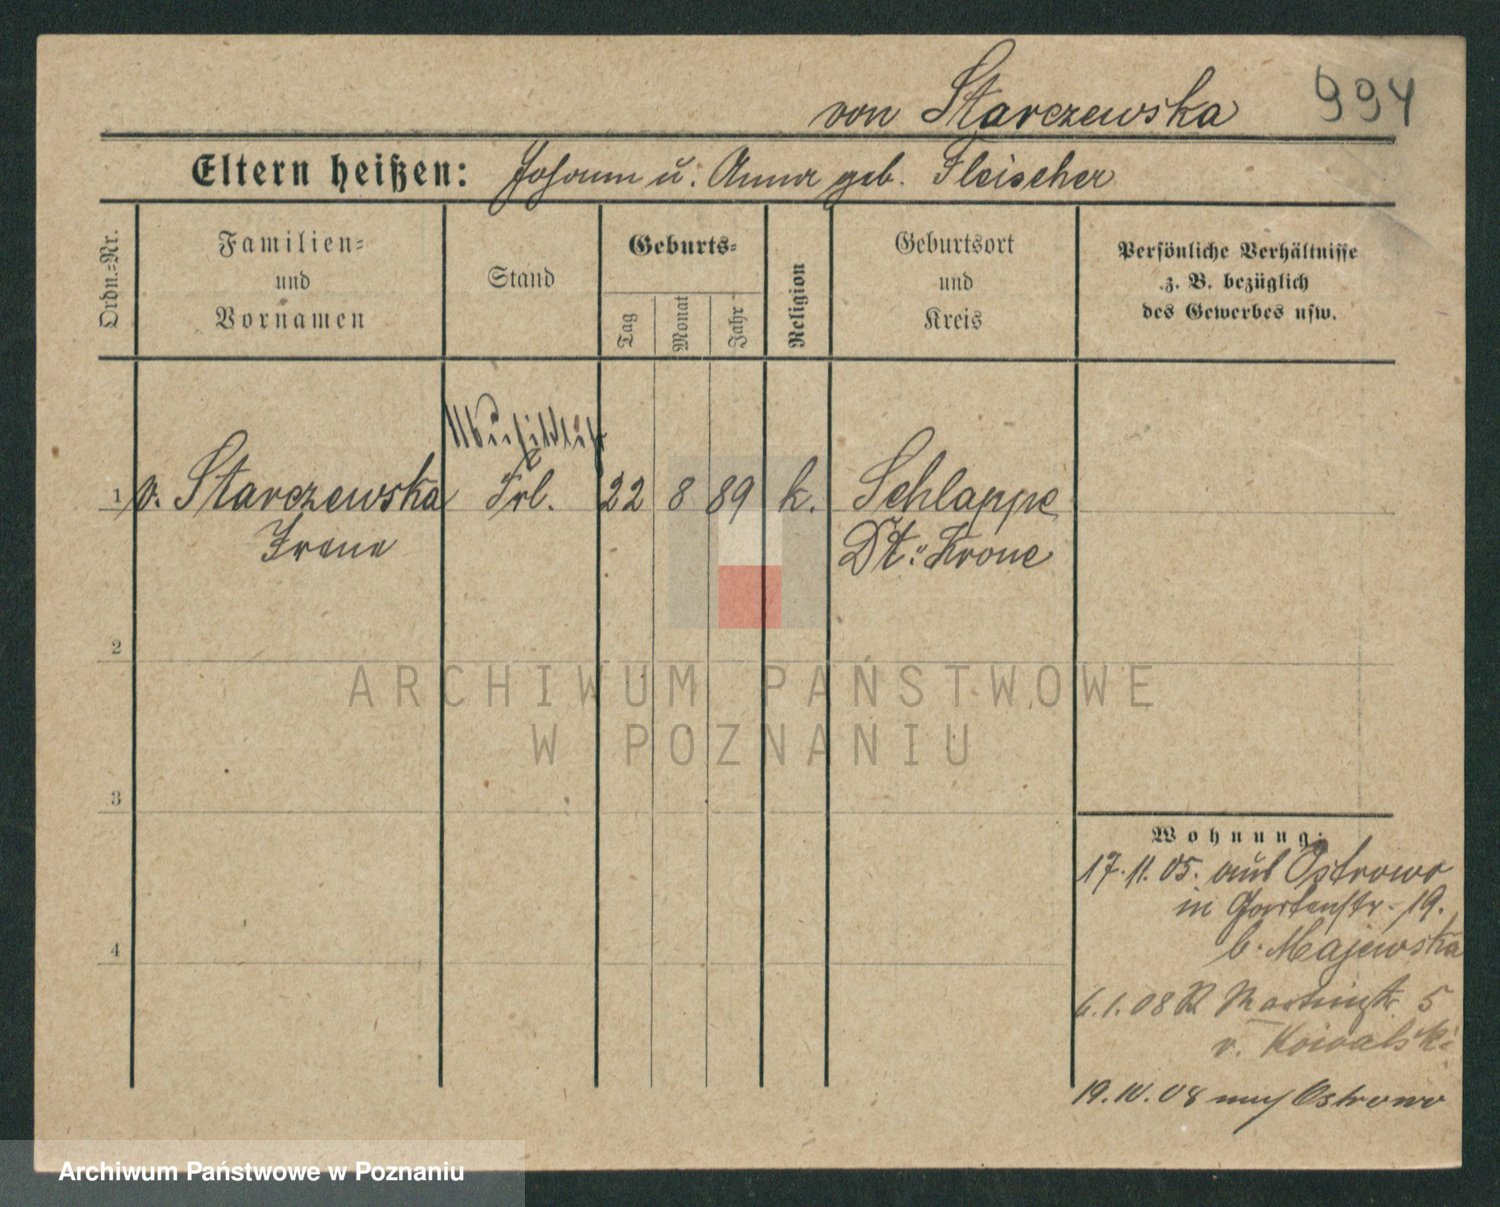 von Starczewska 994
Eltern heißen: Johann u. Anna geb. Fleischer
Ordn.=Nr.
Familien=
und
Vornamen
Stand
Geburts=
Tag
Monat
Jahr
Religion
Geburtsort
und
Kreis
Persönliche Verhältnisse
z. B. bezüglich
des Gewerbes usw.
1 v. Starczewska Frl. 22 8 89 k. Schlappe
Irene Dt. Krone
2
3
4
Wohnung:
17.11.05. aus Ostrowo
in Gartenstr. 19.
b. Majewska
6.1.08 Martinstr. 5
v. Kowalski
19.IV.08 nach Ostrowo
ARCHIWUM PAŃSTWOWE
W POZNANIU
Archiwum Państwowe w Poznaniu